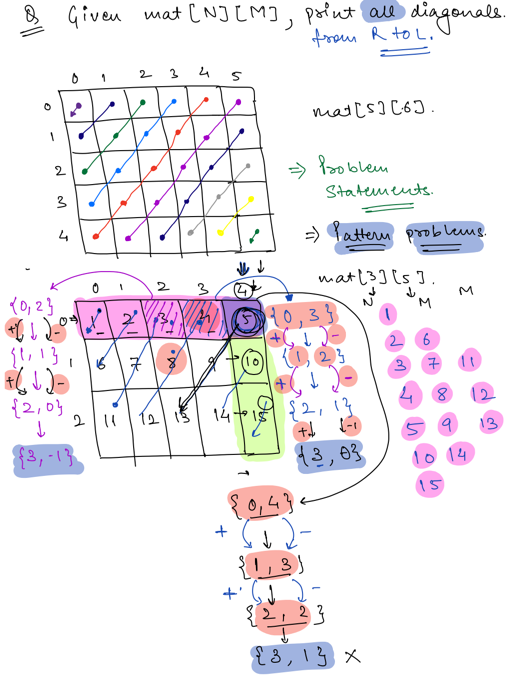 Q Given mat[N][M], print all diagonals.
from R to L.
0 1 2 3 4 5
0
mat[5][6].
1
2
⇒ Problem
Statements.
3
⇒ Pattern problems.
4
mat[3][5].
N M M
0 1 2 3 4
{0,2}
+ -
{1,1}
+ -
{2,0}
{3,-1}
0 1 2 3 4 5
1 6 7 8 9 → 10
2 11 12 13 14 → 15
{0,3}
+ -
{1,2}
+ -
{2,1}
+ -1
{3,0}
1
2 6
3 7 11
4 8 12
5 9 13
10 14
15
{0,4}
+ -
{1,3}
+ -
{2,2}
{3,1} X